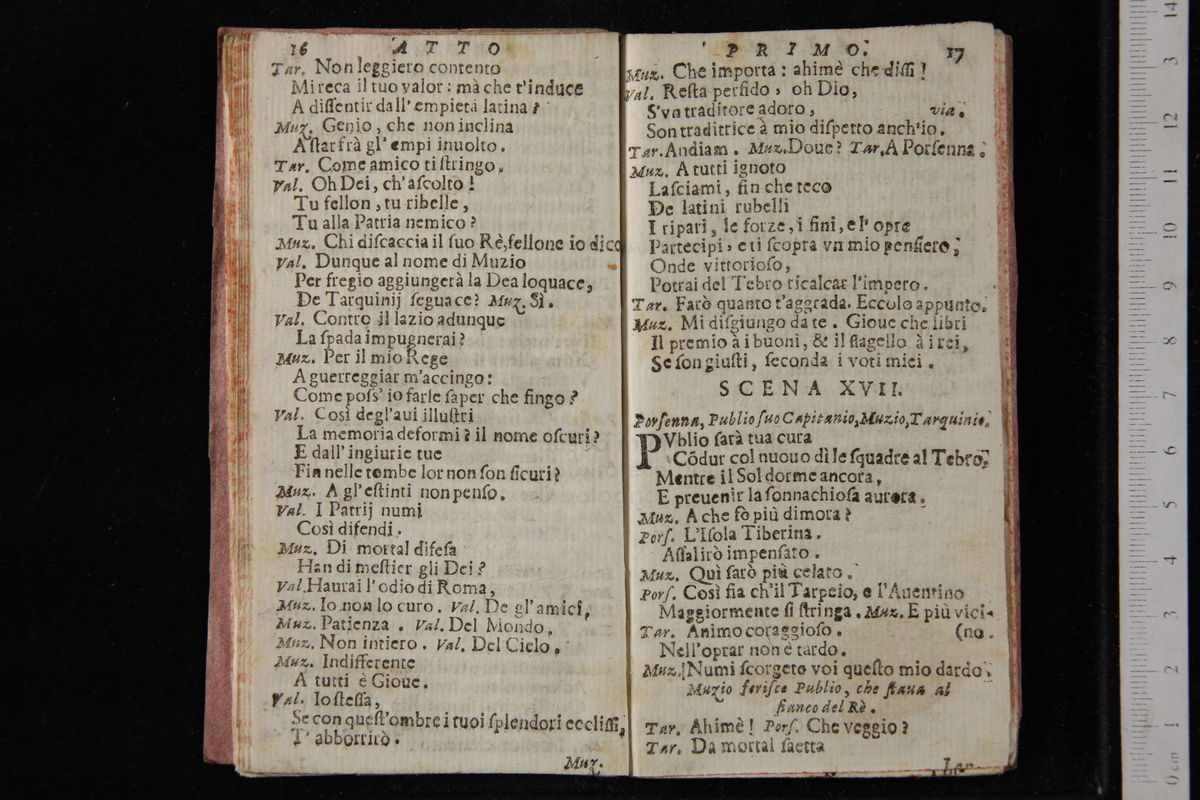 16 ATTO
Tar. Non leggiero contento
Mi reca il tuo valor: mà che t'induce
A diſſentir dall'empietà latina?
Muz. Genio, che non inclina
A ſtar frà gl'empi inuolto.
Tar. Come amico ti ſtringo.
Val. Oh Dei, ch'aſcolto!
Tu fellon, tu ribelle,
Tu alla Patria nemico?
Muz. Chi diſcaccia il ſuo Rè, fellone io dico
Val. Dunque al nome di Muzio
Per fregio aggiungerà la Dea loquace,
De Tarquinij ſeguace? Muz. Sì.
Val. Contro il lazio adunque
La ſpada impugnerai?
Muz. Per il mio Rege
A guerreggiar m'accingo:
Come poſs'io farle ſaper che fingo?
Val. Così degl'aui illuſtri
La memoria deformi? il nome oſcuri?
E dall'ingiurie tue
Fin nelle tombe lor non ſon ſicuri?
Muz. A gl'eſtinti non penſo.
Val. I Patrij numi
Così difendi.
Muz. Di mortal difeſa
Han di meſtier gli Dei?
Val. Haurai l'odio di Roma,
Muz. Io non lo curo. Val. De gl'amici,
Muz. Patienza. Val. Del Mondo,
Muz. Non intiero. Val. Del Cielo,
Muz. Indifferente
A tutti è Gioue.
Val. Io ſteſſa,
Se con queſt'ombre i tuoi ſplendori eccliſſi,
T'abborrirò.
Muz.
PRIMO. 17
Muz. Che importa: ahimè che diſſi!
Val. Reſta perfido, oh Dio,
S'vn traditore adoro, via.
Son traditrice à mio diſpetto anch'io.
Tar. Andiam. Muz. Doue? Tar. A Porſenna.
Muz. A tutti ignoto
Laſciami, fin che teco
De latini rubelli
I ripari, le forze, i fini, e l'opre
Partecipi, e ti ſcopra vn mio penſiero;
Onde vittorioſo,
Potrai del Tebro ricalcar l'impero.
Tar. Farò quanto t'aggrada. Eccolo appunto.
Muz. Mi diſgiungo da te. Gioue che libri
Il premio à i buoni, & il flagello à i rei,
Se ſon giuſti, ſeconda i voti miei.
SCENA XVII.
Porſenna, Publio ſuo Capitanio, Muzio, Tarquinio.
PVblio ſarà tua cura
Cõdur col nuouo dì le ſquadre al Tebro,
Mentre il Sol dorme ancora,
E preuenir la ſonnachioſa aurora.
Muz. A che fò più dimora?
Porſ. L'Iſola Tiberina.
Aſſalirò impenſato.
Muz. Quì farò più celato.
Porſ. Così fia ch'il Tarpeio, e l'Auentino
Maggiormente ſi ſtringa. Muz. E più vici-
Tar. Animo coraggioſo. (no.
Nell'oprar non è tardo.
Muz. Numi ſcorgete voi queſto mio dardo.
Muzio feriſce Publio, che ſtaua al
fianco del Rè.
Tar. Ahimè! Porſ. Che veggio?
Tar. Da mortal ſaetta